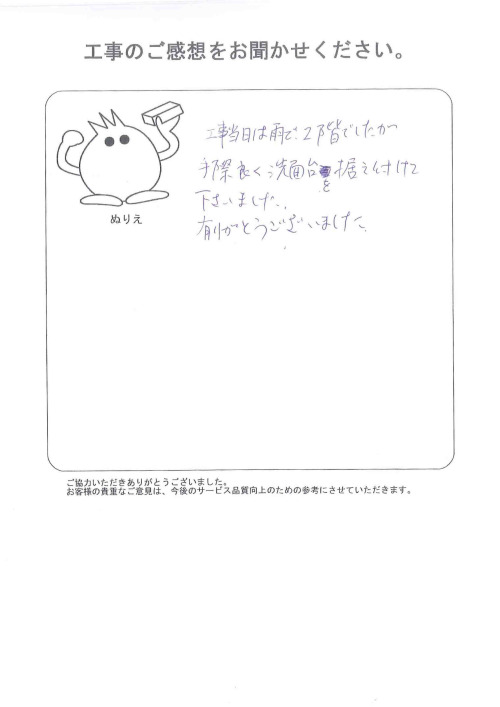 工事のご感想をお聞かせください。
工事当日は雨で、2階でしたが
手際良く洗面台を据え付けて
下さいました。
有りがとうございました。
ぬりえ
ご協力いただきありがとうございました。
お客様の貴重なご意見は、今後のサービス品質向上のための参考にさせていただきます。